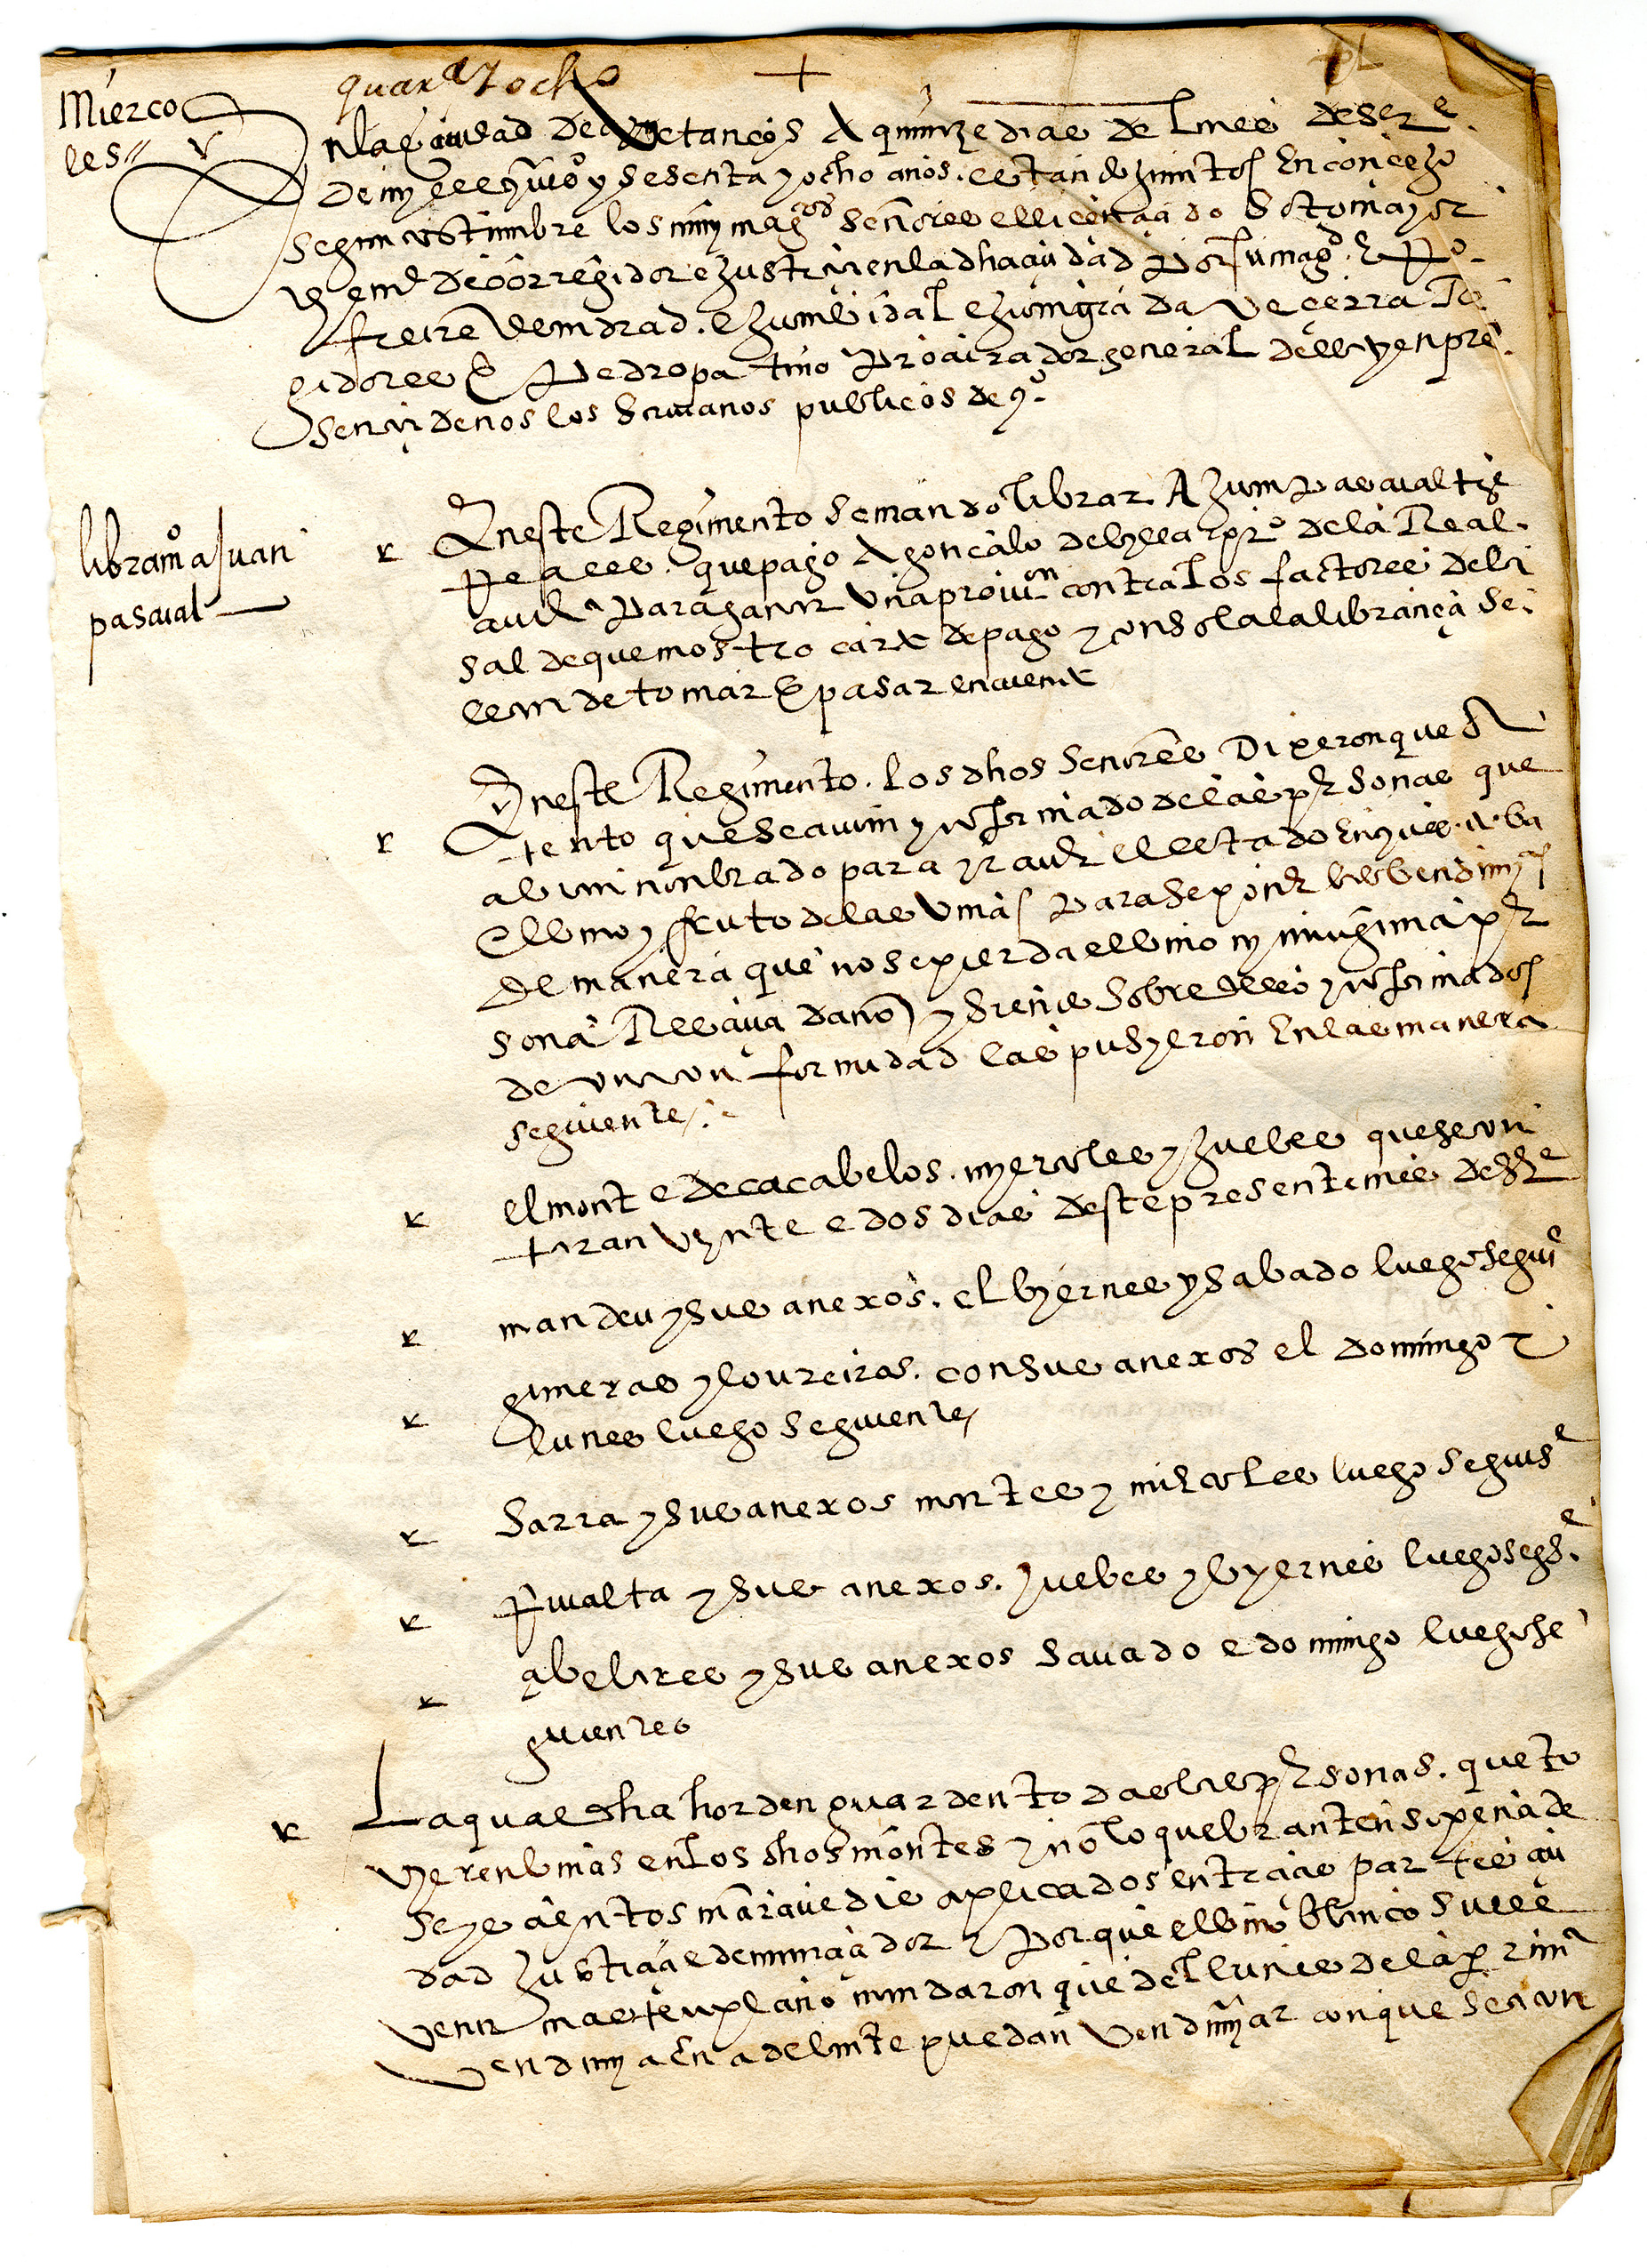 quarª y ocho
Mierco
les //
En la çiudad de vetanços A quinze dias del mes de setze
de myll e quios y sesenta y ocho años. estando juntos En conçejo
segun costumbre los muy magcos señores el liçençiado Sotomayor
de corregidor e justiçia en la dha çiudad por su magd. e Po.
freire de andrad. e Juan vidal e Juan graçia da veçerra Re
gidores e Pedro patiño procurador general della y en pre
sençia de nos los escriuanos publicos de qo.
libramo a Juan
pascual
En este Regimento se mando librar A Juan pascual tres
Reales. que pago A gonçalo de de la Real
audª para ganar vna prouion contra los factores de la
sal de que mostro carta de pago y con sola la librança se
le an de tomar e pasar en cuenta
En este Regimento. los dhos señores Dixeron que A
tento que se avian ynformado de las personas que
abian nonbrado para yr a ver el estado En que estaba
el bino y fruto de las vinas para se poner las bendimyas
de manera que no se pierda el bino ny ninguna per
sona Resçiua daño y sobre ello ynformados
de vna conformidad las pusyeron En la manera
seguiente /.
el monte de caçabelos. myercoles y Juebes que se con
taran veynte e dos dias deste presente mes de setze
mandeu y sus anexos. el byernes y sabado luego seguie
gimeras y loureiros. con sus anexos el domingo e
lunes luego seguiente /
Sarra y sus anexos martes y miercoles luego seguise
Piualta y sus anexos. Juebes y byernes luego segse.
abelares y sus anexos savado e domingo luego se
guientes
La qual dha horden guarden todas las personas. que to
vyeren binas en los dhos montes y no lo quebranten so pena de
seysçientos maravedis aplicados en tres partes çiu
dad Justiçia e denunçiador e Por que el bino blanco suele
venir mas tenplano mandaron que del lunes de la prima
vendimya En adelante puedan vendimyar con que sea con